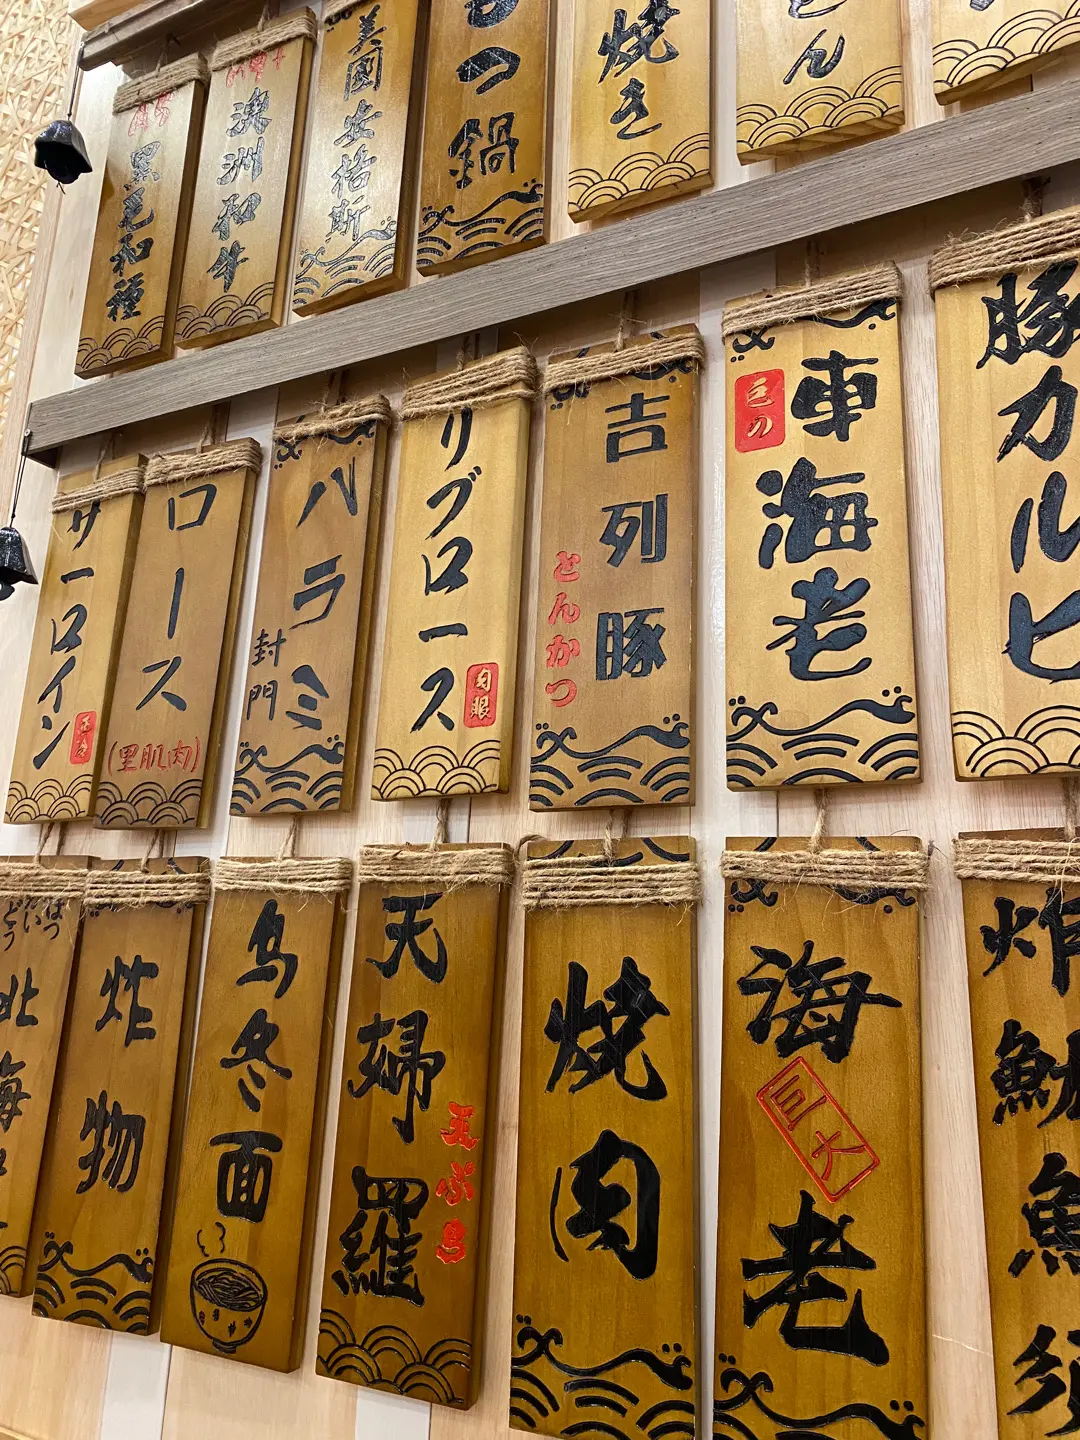 黒毛和種
澳洲和牛
美國安格斯
もつ鍋
焼き
ん
サーロイン
ロース
(里肌肉)
ハラミ
封門
リブロース
肉眼
吉列豚
とんかつ
車海老
豚カルビ
北海
炸物
烏冬面
天婦羅
天ぷら
焼肉
海老
巨大
炸魷魚須